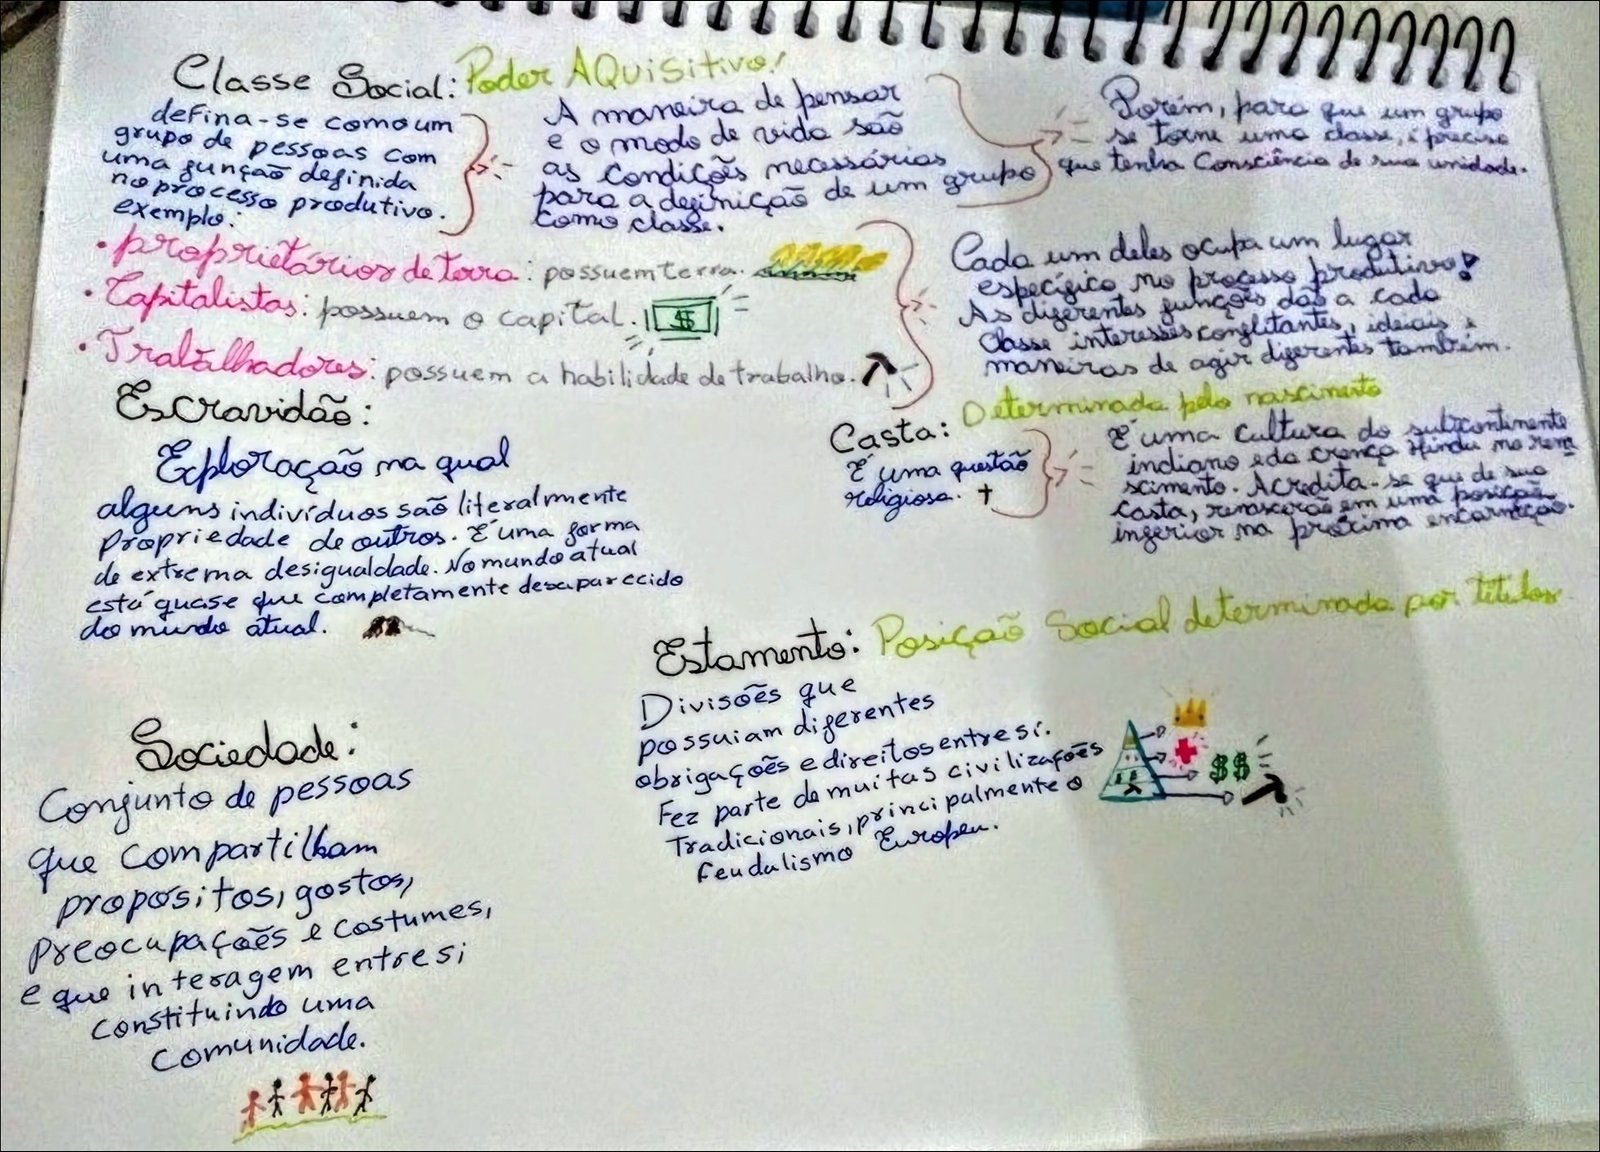 Classe Social: Poder AQuisitivo!
defina-se como um
grupo de pessoas com
uma função definida
no processo produtivo.
exemplo:
A maneira de pensar
e o modo de vida são
as condições necessárias
para a definição de um grupo
como classe.
Porém, para que um grupo
se torne uma classe, é preciso
que tenha Consciência de sua unidade.
• proprietários de terra: possuem terra.
• Capitalistas: possuem o capital. $
• Trabalhadores: possuem a habilidade de trabalho.
Cada um deles ocupa um lugar
específico no processo produtivo!
As diferentes funções dão a cada
Classe interesses conflitantes, ideiais e
maneiras de agir diferentes também.
Escravidão:
Exploração na qual
alguns indivíduos são literalmente
propriedade de outros. É uma forma
de extrema desigualdade. No mundo atual
está quase que completamente desaparecido
do mundo atual.
Casta: Determinada pelo nascimento
É uma questão
religiosa.
É uma cultura do subcontinente
indiano e da crença Hindu no renas
scimento. Acredita-se que de sua
casta, renascerão em uma posição
inferior na próxima encarnação.
Estamento: Posição Social determinada por títulos.
Divisões que
possuiam diferentes
obrigações e direitos entre si.
Fez parte de muitas civilizações
Tradicionais, principalmente o
feudalismo Europeu.
$$
Sociedade:
Conjunto de pessoas
que compartilham
propósitos, gostos,
preocupações e costumes,
e que interagem entre si
constituindo uma
comunidade.